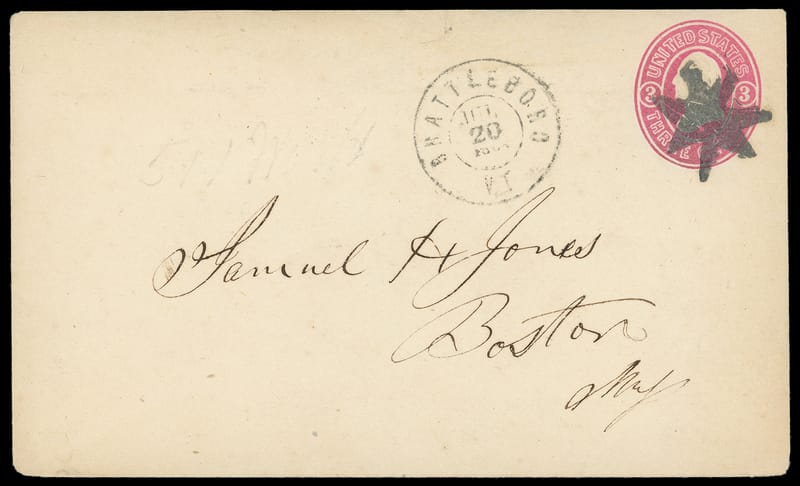 UNITED STATES
3 3
THREE
BRATTLEBORO
JUL
20
Samuel H Jones
Boston